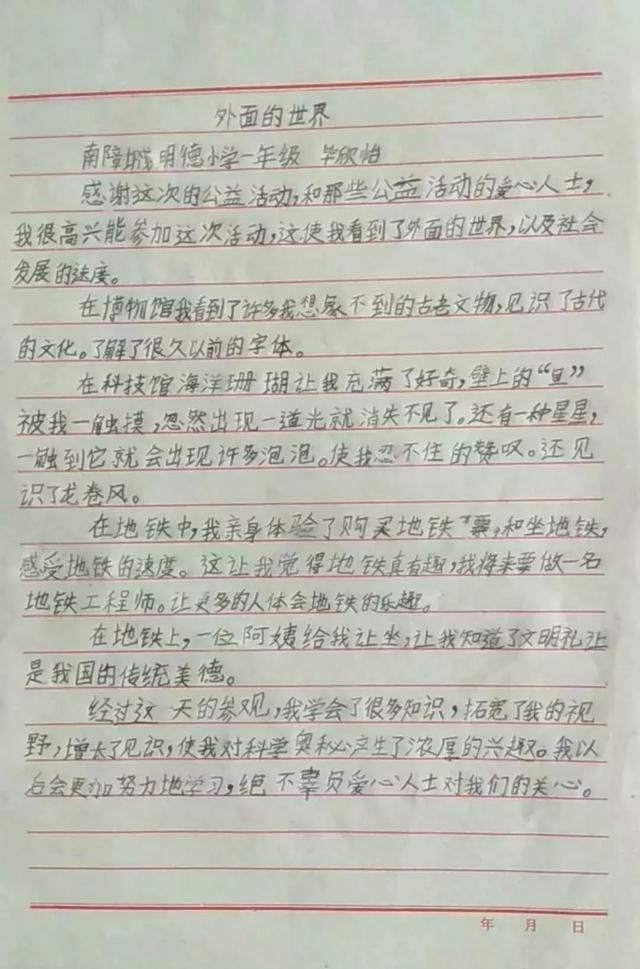 外面的世界
南障城明德小学一年级 毕欣怡
感谢这次的公益活动,和那些公益活动的爱心人士,
我很高兴能参加这次活动,这使我看到了外面的世界,以及社会
发展的速度。
在博物馆我看到了许多我想象不到的古老文物,见识了古代
的文化。了解了很久以前的字体。
在科技馆海洋珊瑚让我充满了好奇,壁上的“鱼”
被我一触摸,忽然出现一道光就消失不见了。还有一种星星,
一触到它就会出现许多泡泡。使我忍不住的赞叹。还见
识了龙卷风。
在地铁中,我亲身体验了购买地铁票,和坐地铁,
感受地铁的速度。这让我觉得地铁真有趣,我将来要做一名
地铁工程师。让更多的人体会地铁的乐趣。
在地铁上,一位阿姨给我让坐,让我知道了文明礼让
是我国的传统美德。
经过这一天的参观,我学会了很多知识,拓宽了我的视
野,增长了见识,使我对科学奥秘产生了浓厚的兴趣。我以
后会更加努力地学习,绝不辜负爱心人士对我们的关心。
年 月 日